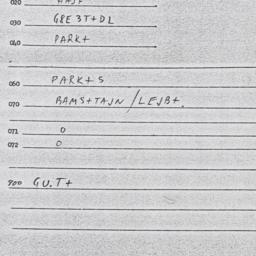 020
030 GRE 3T+DL
040 PARK+
060 PARK+ S
070 BAMS+TAJN / LEJB+.
071 0
072 0
900 GU.T+